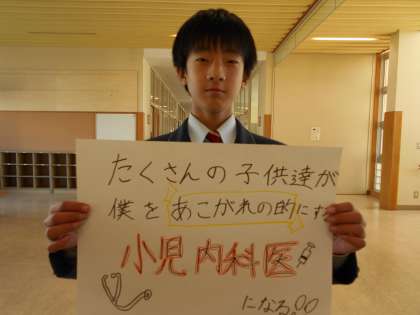 たくさんの子供達が
僕をあこがれの的にす
小児内科医
になる。